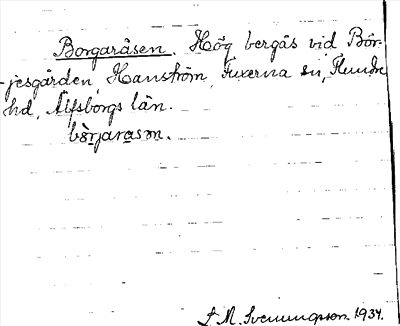 Borgaråsen. Hög bergås vid Bör-
jesgården, Hanström, Fuxerna sn, Flundre
hd, Älfsborgs län.
bòrjarasm.
L. M. Svenungsson. 1934.